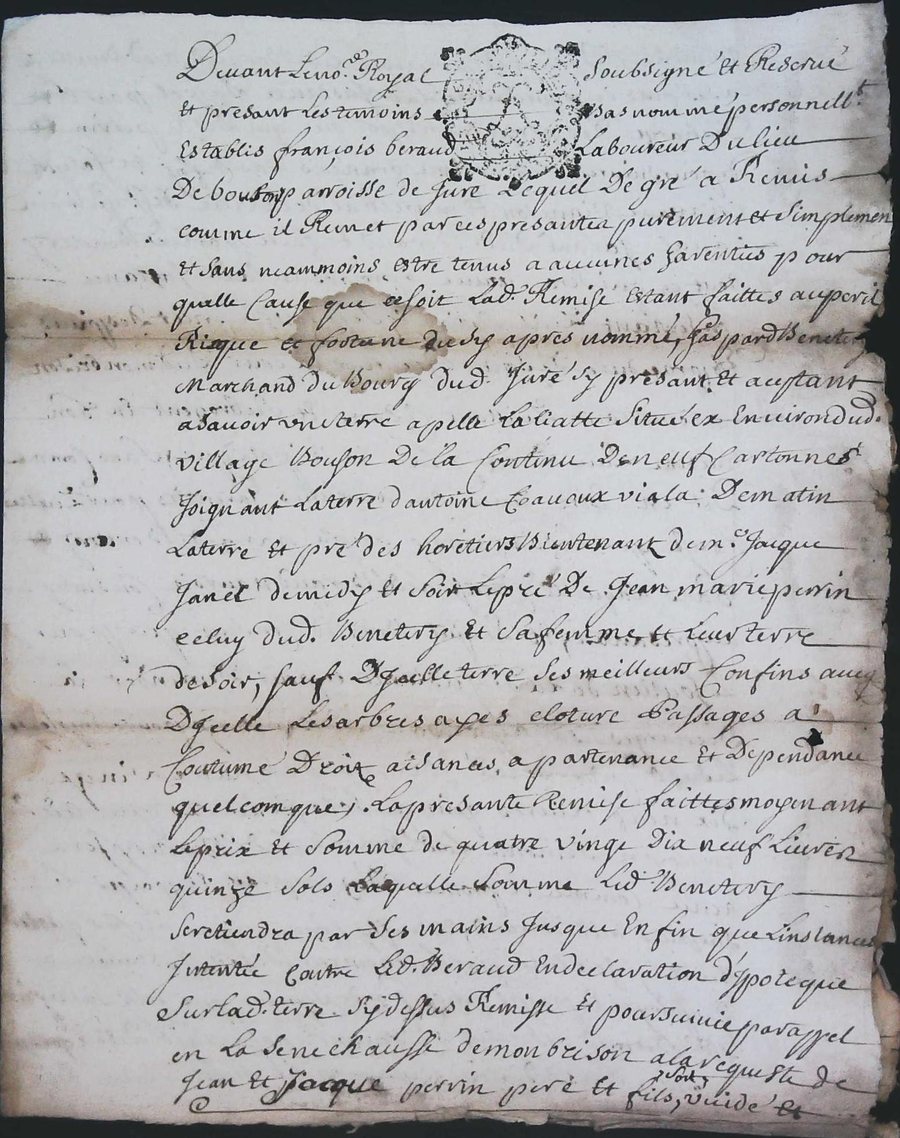 Devant Le no.re Royal Soubsigné et Reservé
et presant Les temoins bas nommé personnell.t
Establis françois beraud Laboureur Du lieu
De bouson parroisse de Jure Lequel De gré a Remis
comme il Remet par ces presantes purement et simplemen
et sans neammoins estre tenus a aucunes garenties pour
qualle Cause que ce soit Lad. Remise estant faittes au peril
Risque et fortune du sy apres nommé, gaspard Benetiry
Marchand du Bourg dud. Juré sy présant et aceptant
asavoir une terre apelle La liatte Situé ex Environ dud.
village Bouson De la Contenu De neuf Cartonnes
Joignant La terre dantoine via la De matin
La terre et pré des heretiers Bientenant de m.e Jacque
Janel de midy et Soir Le pré De Jean marie perrin
celuy Dud. Benetiry et Sa femme et Leur terre
de soir, sauf Dycelle terre Ses meilleurs Confins avec
Dycelle Les arbres ayes cloture Passages a
Coutume Droit aisances apartenance et Dependance
quelcomque, La presante Remise faittes moyenant
Le prix et Somme de quatre vingt Dix neuf Livres
quinze Sols Laqualle Somme Led. Benetiry
Se retiendra par Ses mains Jusque Enfin que Linstances
Intentée Contre Led. Beraud En declaration dypoteque
Sur Lad. terre Sy dessus Remisse et poursuivie par appel
en La Senechaussé de monbrison a la requeste de
Jean et Jacque perrin pere et fils, soit, vuidé et